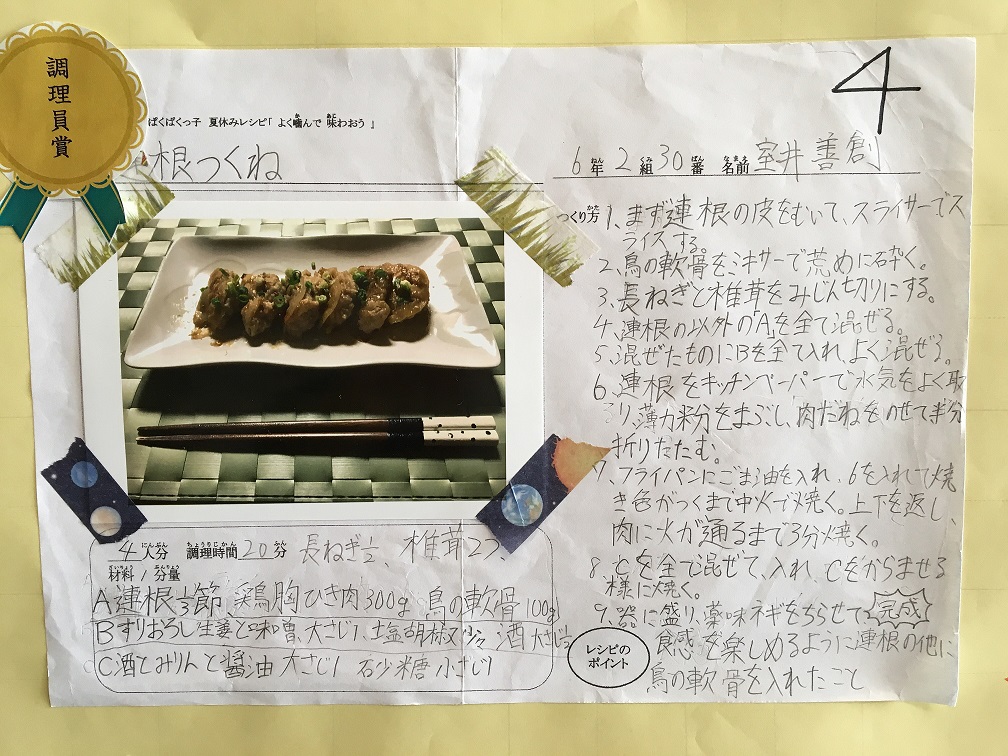 調理員賞
4
ぱくぱくっ子 夏休みレシピ「よく噛んで 味わおう 』
根つくね
6年 2組 30番 名前 室井 善創
つくり方
1、まず連根の皮をむいて、スライサーでス
ライスする。
2、鳥の軟骨をミキサーで荒めに砕く。
3、長ねぎと椎茸をみじん切りにする。
4、連根の以外のAを全て混ぜる。
5、混ぜたものにBを全て入れ、よく混ぜる。
6、連根をキッチンペーパーで水気をよく取
り、薄力粉をまぶし、肉だねをのせて半分
折りたたむ。
7、フライパンにごま油を入れ、6を入れて焼
き色がつくまで中火で焼く。上下を返し、
肉に火が通るまで3分焼く。
8、Cを全て混ぜて、入れ、Cをからませる
様に焼く。
9、器に盛り、薬味ネギをちらせて完成
レシピの
ポイント
食感を楽しめるように連根の他に
鳥の軟骨を入れたこと
4人分 調理時間 20分 長ねぎ½、椎茸2コ、
材料 / 分量
A連根⅓節 鶏胸ひき肉300g 鳥の軟骨100g
Bすりおろし生姜と味噌、大さじ1、塩胡椒 少々 酒 大さじ½
C酒とみりんと醤油 大さじ1 砂糖 小さじ1